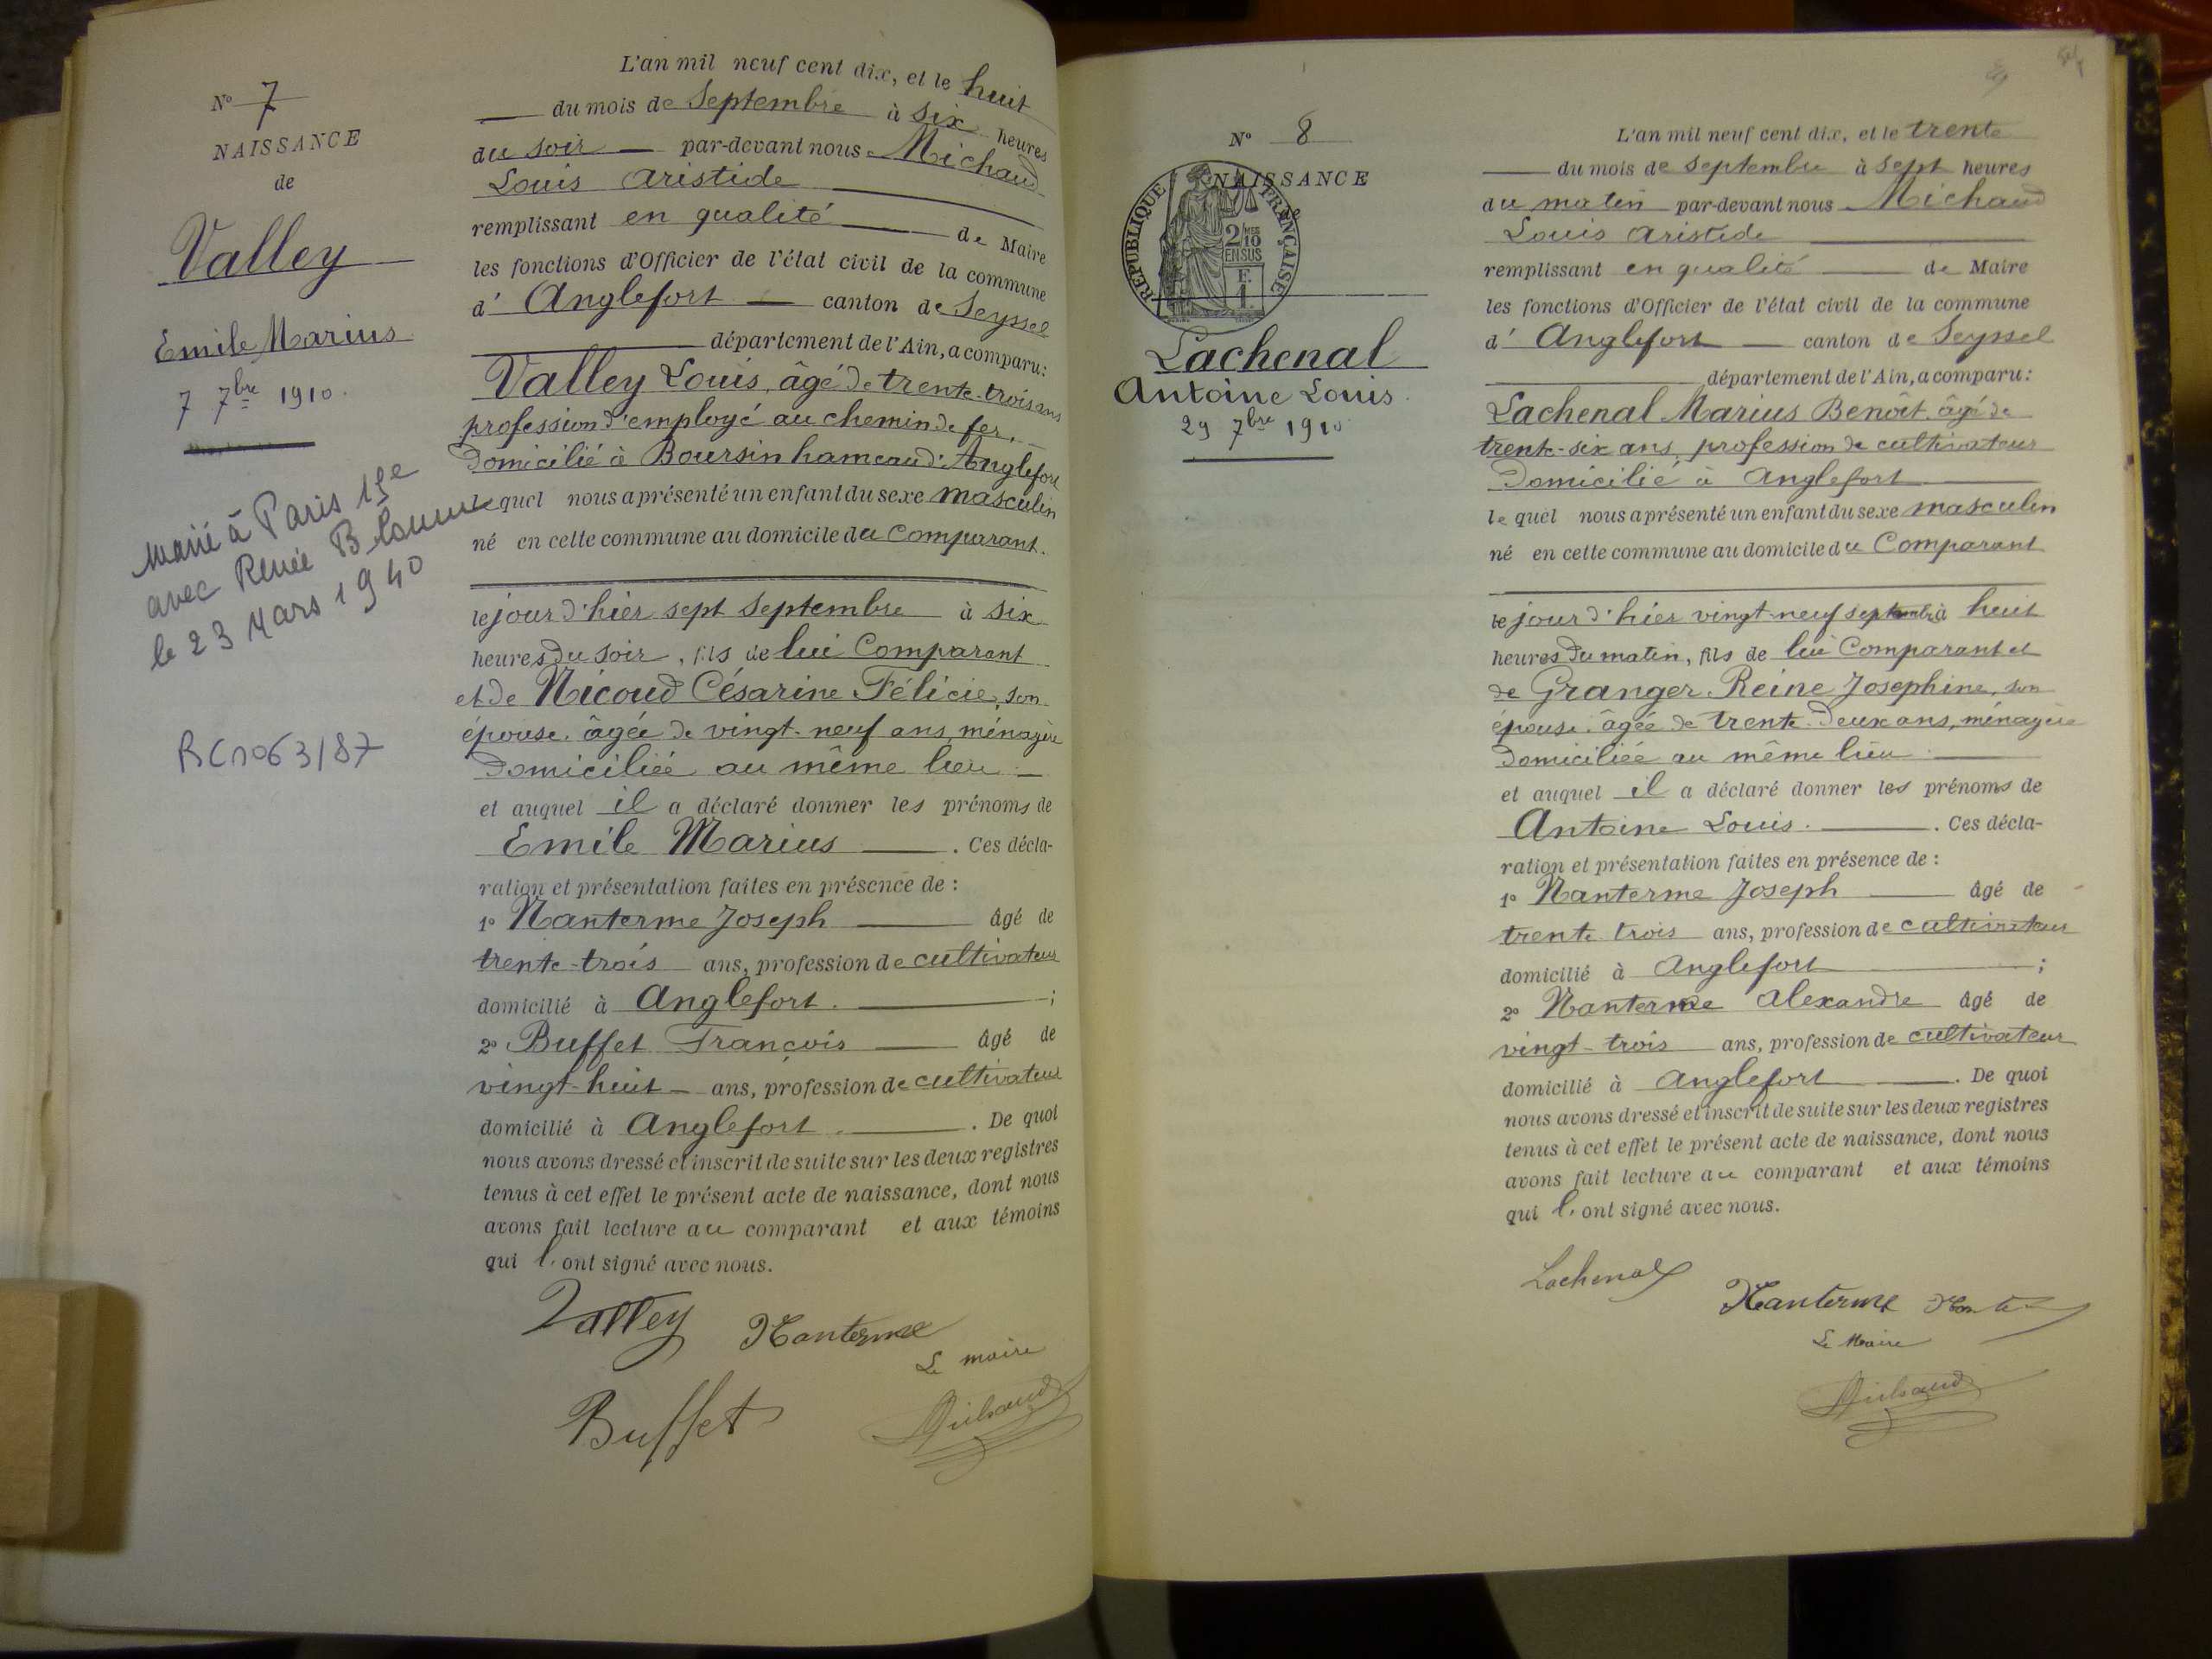 N° 7
NAISSANCE
de
Valley
Emile Marius
7 7bre 1910.
marié à Paris
avec Renée
le 23 Mars 1940
RC1063/87
L'an mil neuf cent dix, et le huit
du mois de Septembre à six heures
du soir par-devant nous Michaud
Louis Aristide
remplissant en qualité de Maire
les fonctions d'Officier de l'état civil de la commune
d' Anglefort canton de Seyssel
département de l'Ain, a comparu:
Valley Louis, âgé de trente-trois ans
profession d'employé au chemin de fer,
domicilié à Boursin hameau d'Anglefort
lequel nous a présenté un enfant du sexe masculin
né en cette commune au domicile du Comparant.
le jour d'hier sept Septembre à six
heures du soir, fils de lui Comparant
et de Nicoud Césarine Félicie, son
épouse, âgée de vingt-neuf ans, ménagère
domiciliée au même lieu
et auquel il a déclaré donner les prénoms de
Emile Marius . Ces décla-
ration et présentation faites en présence de :
1° Nanterme Joseph âgé de
trente-trois ans, profession de cultivateur
domicilié à Anglefort. ;
2° Buffet François âgé de
vingt-huit ans, profession de cultivateur
domicilié à Anglefort . De quoi
nous avons dressé et inscrit de suite sur les deux registres
tenus à cet effet le présent acte de naissance, dont nous
avons fait lecture au comparant et aux témoins
qui l'ont signé avec nous.
Valley Nanterme
Le maire
Buffet Michaud
N° 8
NAISSANCE
de
RÉPUBLIQUE FRANÇAISE
2/10
EN SUS
F.
1.
Lachenal
Antoine Louis.
29 7bre 1910
L'an mil neuf cent dix, et le trente
du mois de septembre à sept heures
du matin par-devant nous Michaud
Louis Aristide
remplissant en qualité de Maire
les fonctions d'Officier de l'état civil de la commune
d' Anglefort canton de Seyssel
département de l'Ain, a comparu:
Lachenal Marius Benoît, âgé de
trente-six ans, profession de cultivateur
domicilié à Anglefort
le quel nous a présenté un enfant du sexe masculin
né en cette commune au domicile du Comparant
le jour d'hier vingt-neuf septembre à huit
heures du matin, fils de lui Comparant et
de Granger Reine Josephine, son
épouse, âgée de trente-deux ans, ménagère
domiciliée au même lieu.
et auquel il a déclaré donner les prénoms de
Antoine Louis. . Ces décla-
ration et présentation faites en présence de :
1° Nanterme Joseph âgé de
trente trois ans, profession de cultivateur
domicilié à Anglefort ;
2° Nanterme Alexandre âgé de
vingt-trois ans, profession de cultivateur
domicilié à Anglefort . De quoi
nous avons dressé et inscrit de suite sur les deux registres
tenus à cet effet le présent acte de naissance, dont nous
avons fait lecture au comparant et aux témoins
qui l'ont signé avec nous.
Lachenal
Nanterme
Le Maire
Michaud